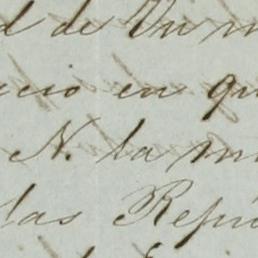 d de Un m
acio en qu
N. la mi
las Repú